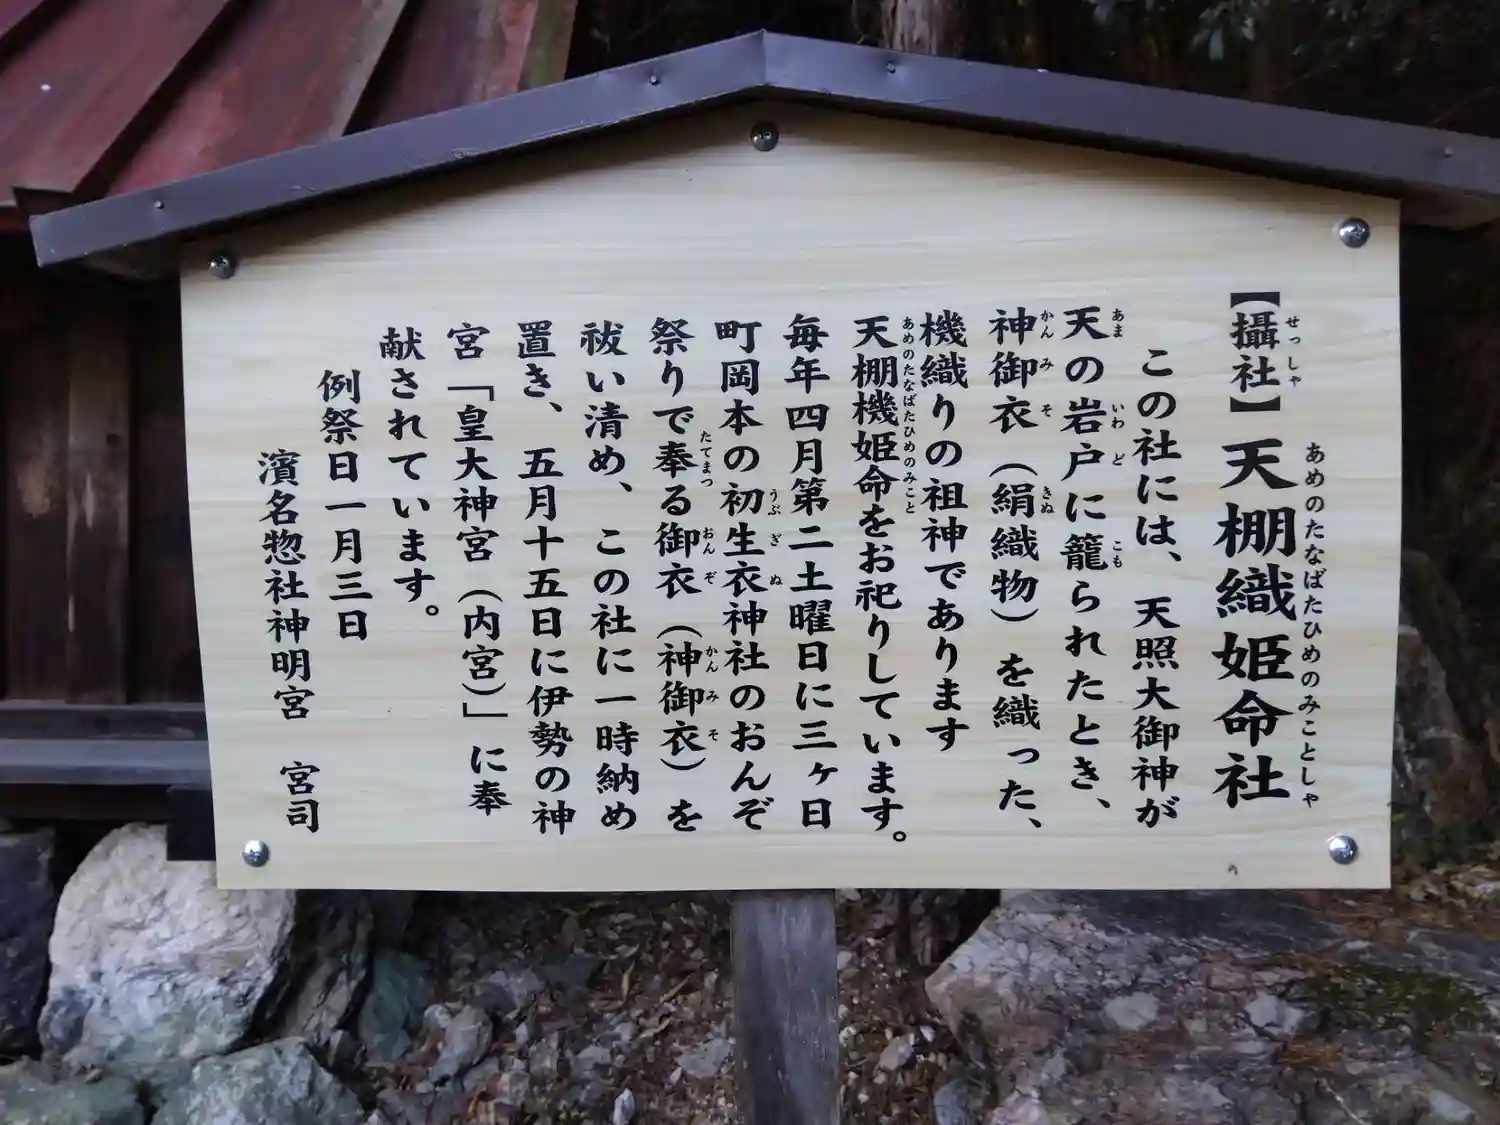 【攝社】天棚織姫命社
この社には、天照大御神が
天の岩戸に籠られたとき、
神御衣（絹織物）を織った、
機織りの祖神であります
天棚機姫命をお祀りしています。
毎年四月第二土曜日に三ヶ日
町岡本の初生衣神社のおんぞ
祭りで奉る御衣（神御衣）を
祓い清め、この社に一時納め
置き、五月十五日に伊勢の神
宮「皇大神宮（内宮）」に奉
献されています。
例祭日一月三日
濱名惣社神明宮　宮司